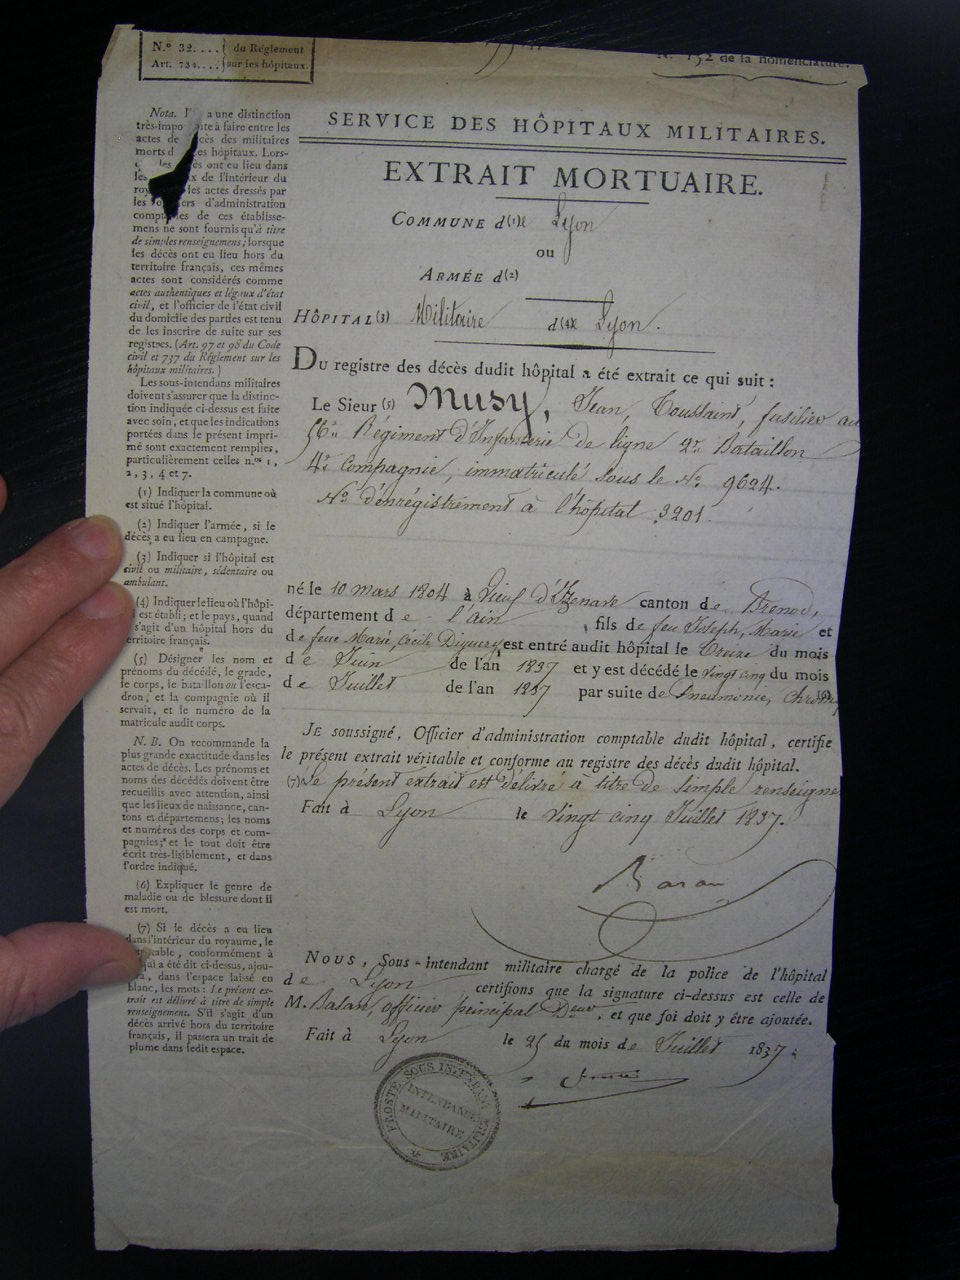 N.º 32.... du Réglement
Art. 734.... sur les hôpitaux.
N.º 152 de la nomenclature.
SERVICE DES HÔPITAUX MILITAIRES.
EXTRAIT MORTUAIRE.
COMMUNE d(1)e Lyon
ou
ARMÉE d(2)
HÔPITAL(3) Militaire d(4)e Lyon.
Du registre des décès dudit hôpital a été extrait ce qui suit :
Le Sieur (5) Musy, Jean Toussaint, fusilier au
56e Régiment d'Infanterie de ligne 2e Bataillon
4e Compagnie, immatriculé sous le No 9624.
No d'enrégistrement à l'hôpital 3201.
né le 10 mars 1804 à Vieuf d'Izenave canton de Brenod,
département de l'ain, fils de feu Joseph, Marie et
de feue Marie, Cécile est entré audit hôpital le Onze du mois
de Juin de l'an 1837 et y est décédé le vingt cinq du mois
de Juillet de l'an 1837 par suite de Pneumonie, (6)
JE soussigné, Officier d'administration comptable dudit hôpital, certifie
le présent extrait véritable et conforme au registre des décès dudit hôpital.
(7) Le présent extrait est délivré à titre de simple renseigne
Fait à Lyon le vingt cinq Juillet 1837.
NOUS, Sous-intendant militaire chargé de la police de l'hôpital
de Lyon certifions que la signature ci-dessus est celle de
M. officier principal, et que foi doit y être ajoutée.
Fait à Lyon le 25 du mois de Juillet 1837.
SOUS INTENDANCE MILITAIRE
INTENDANCE
MILITAIRE
Nota. a une distinction
à faire entre les
actes de décès des militaires
morts d es hôpitaux. Lors-
les ès ont eu lieu dans
x de l'intérieur du
les actes dressés par
les d'administration
comptables de ces établisse-
mens ne sont fournis qu'à titre
de simples renseignemens; lorsque
les décès ont eu lieu hors du
territoire français, ces mêmes
actes sont considérés comme
actes authentiques et légaux d'état
civil, et l'officier de l'état civil
du domicile des parties est tenu
de les inscrire de suite sur ses
registres. (Art. 97 et 98 du Code
civil et 737 du Réglement sur les
hôpitaux militaires.)
Les sous-intendans militaires
doivent s'assurer que la distinc-
tion indiquée ci-dessus est faite
avec soin, et que les indications
portées dans le présent impri-
mé sont exactement remplies,
particulièrement celles n.os 1,
2, 3, 4 et 7.
(1) Indiquer la commune où
est situé l'hôpital.
(2) Indiquer l'armée, si le
décès a eu lieu en campagne.
(3) Indiquer si l'hôpital est
civil ou militaire, sédentaire ou
ambulant.
(4) Indiquer le lieu où l'hôpi-
est établi; et le pays, quand
s'agit d'un hôpital hors du
territoire français.
(5) Désigner les nom et
prénoms du décédé, le grade,
le corps, le bataillon ou l'esca-
dron, et la compagnie où il
servait, et le numéro de la
matricule audit corps.
N. B. On recommande la
plus grande exactitude dans les
actes de décès. Les prénoms et
noms des décédés doivent être
recueillis avec attention, ainsi
que les lieux de naissance, can-
tons et départemens; les noms
et numéros des corps et com-
pagnies; et le tout doit être
écrit très-lisiblement, et dans
l'ordre indiqué.
(6) Expliquer le genre de
maladie ou de blessure dont il
est mort.
(7) Si le décès a eu lieu
dans l'intérieur du royaume, le
comptable, conformément à
qui a été dit ci-dessus, ajou-
, dans l'espace laissé en
blanc, les mots : Le présent ex-
trait est délivré à titre de simple
renseignement. S'il s'agit d'un
décès arrivé hors du territoire
français, il passera un trait de
plume dans ledit espace.